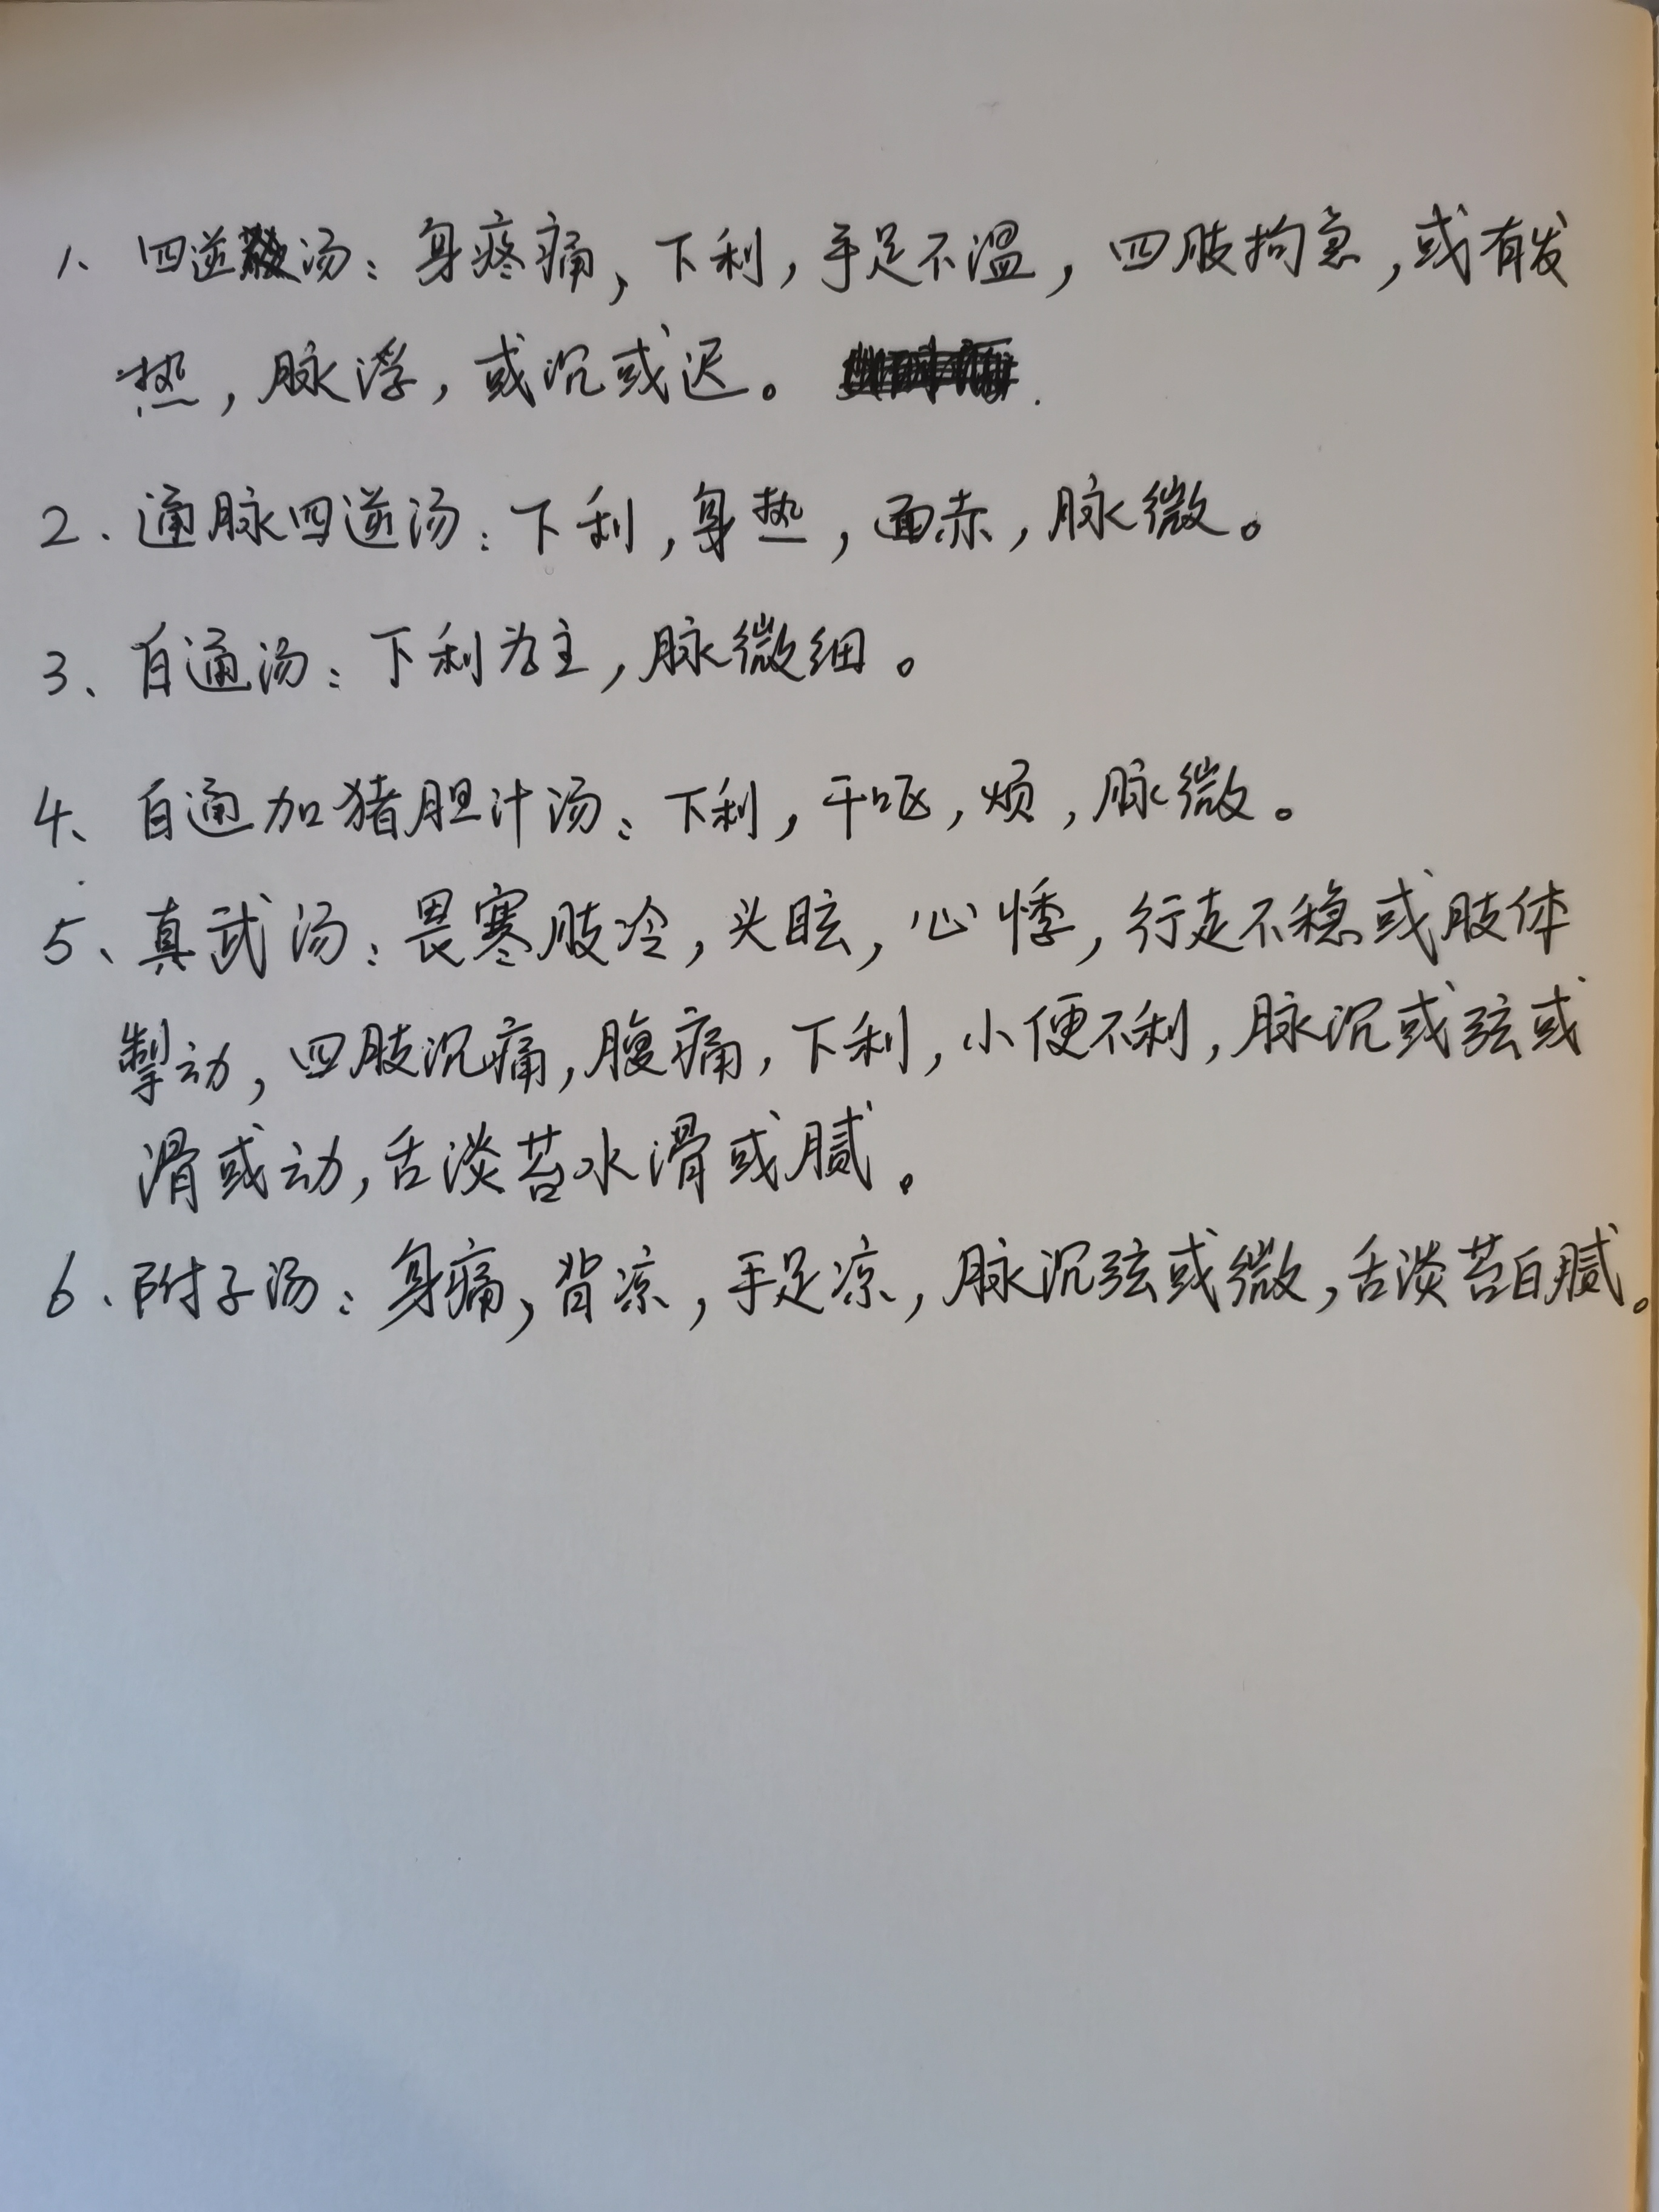 1、四逆汤：身疼痛，下利，手足不温，四肢拘急，或有发
热，脉浮，或沉或迟。
2、通脉四逆汤：下利，身热，面赤，脉微。
3、白通汤：下利为主，脉微细。
4、白通加猪胆汁汤：下利，干呕，烦，脉微。
5、真武汤：畏寒肢冷，头眩，心悸，行走不稳或肢体
掣动，四肢沉痛，腹痛，下利，小便不利，脉沉或弦或
滑或动，舌淡苔水滑或腻。
6、附子汤：身痛，背凉，手足凉，脉沉弦或微，舌淡苔白腻。